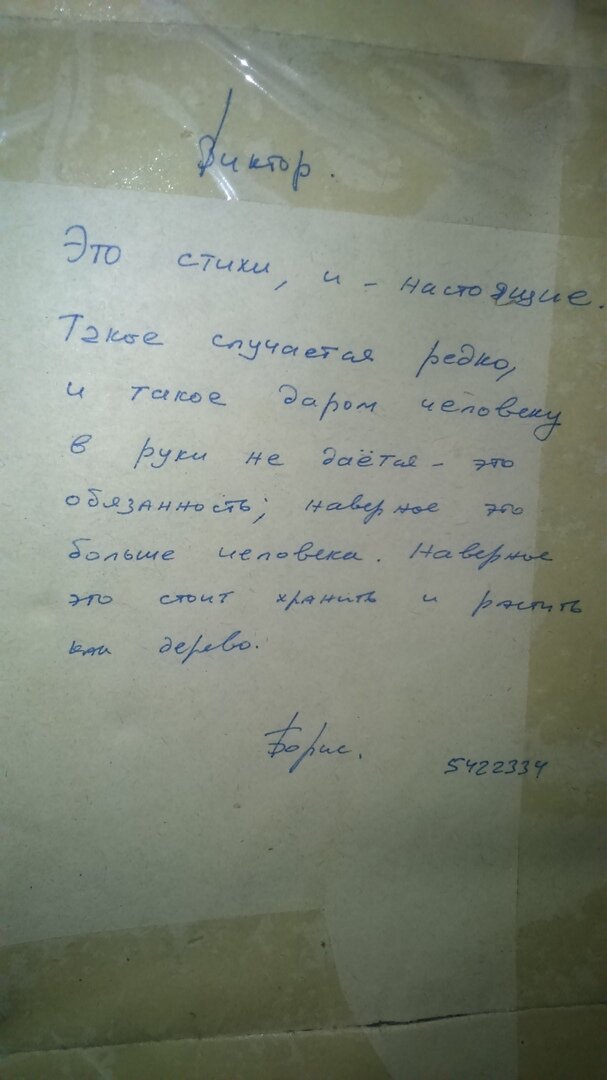 Виктор.
Это стихи, и – настоящие.
Такое случается редко,
и такое даром человеку
в руки не даётся – это
обязанность; наверное это
больше человека. Наверное
это стоит хранить и растить
как дерево.
Борис.
5422334